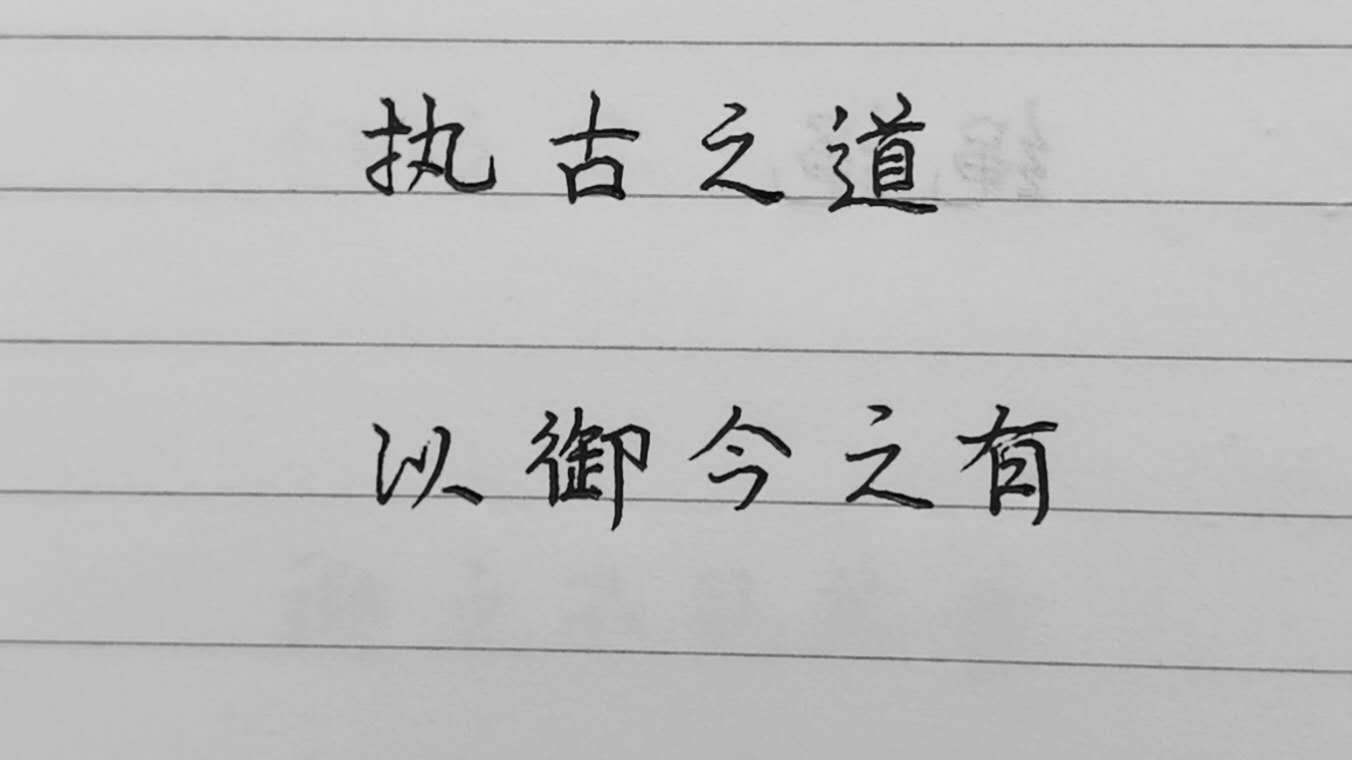 执古之道
以御今之有